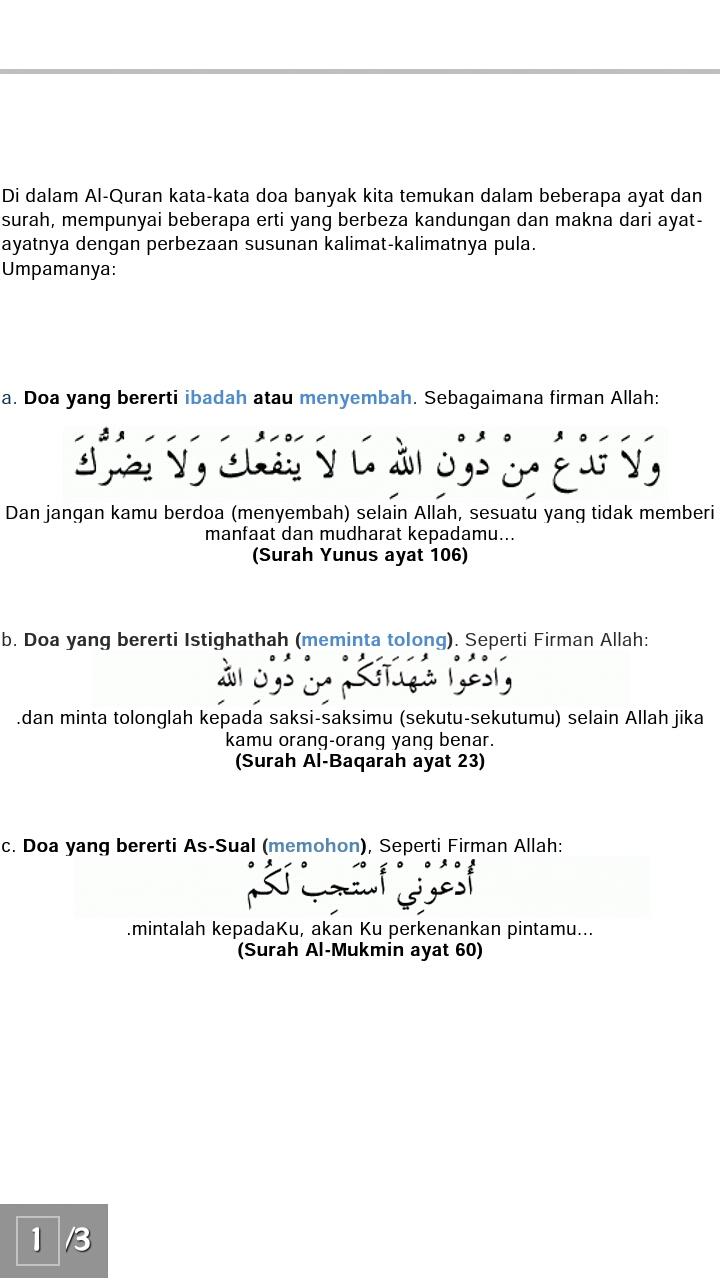 Di dalam Al-Quran kata-kata doa banyak kita temukan dalam beberapa ayat dan
surah, mempunyai beberapa erti yang berbeza kandungan dan makna dari ayat-
ayatnya dengan perbezaan susunan kalimat-kalimatnya pula.
Umpamanya:
a. Doa yang bererti ibadah atau menyembah. Sebagaimana firman Allah:
وَلَا تَدْعُ مِنْ دُوْنِ اللهِ مَا لاَ يَنْفَعُكَ وَلاَ يَضُرُّكَ
Dan jangan kamu berdoa (menyembah) selain Allah, sesuatu yang tidak memberi
manfaat dan mudharat kepadamu...
(Surah Yunus ayat 106)
b. Doa yang bererti Istighathah (meminta tolong). Seperti Firman Allah:
وَادْعُوْا شُهَدَآئَكُمْ مِنْ دُوْنِ اللهِ
.dan minta tolonglah kepada saksi-saksimu (sekutu-sekutumu) selain Allah jika
kamu orang-orang yang benar.
(Surah Al-Baqarah ayat 23)
c. Doa yang bererti As-Sual (memohon), Seperti Firman Allah:
أُدْعُوْنِيْ أَسْتَجِبْ لَكُمْ
.mintalah kepadaKu, akan Ku perkenankan pintamu...
(Surah Al-Mukmin ayat 60)
1 /3